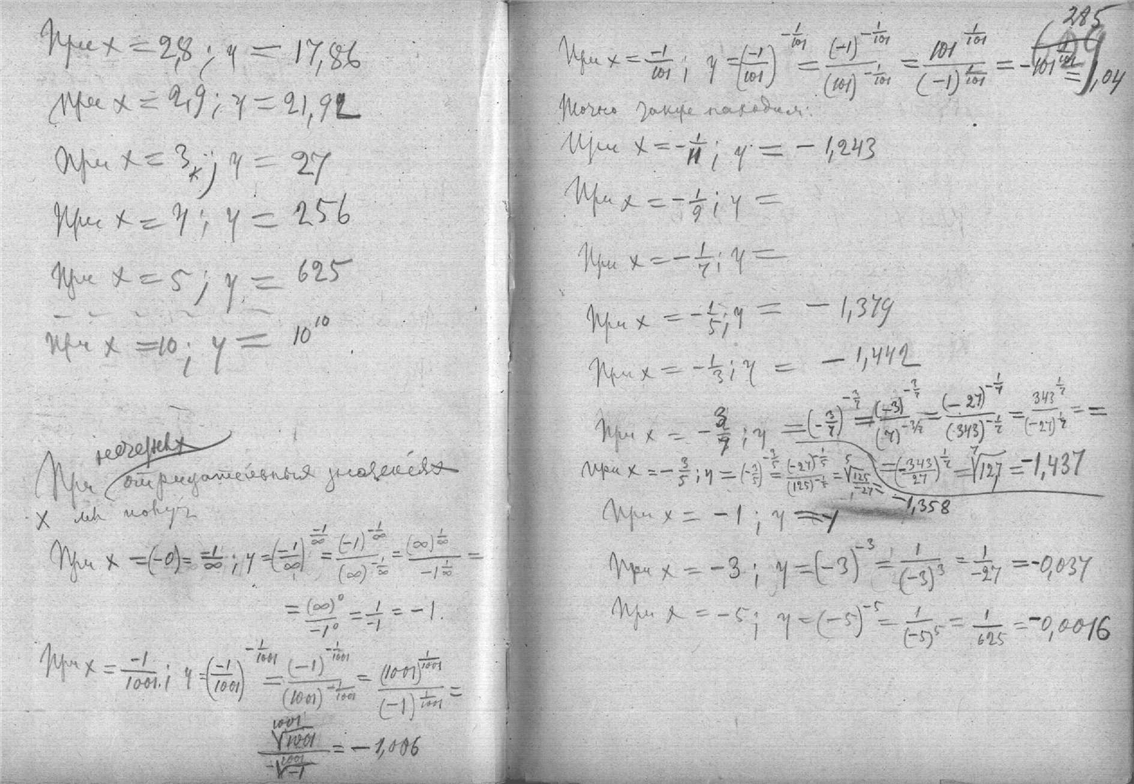 При x = 2,8; y = 17,86
При x = 2,9; y = 21,92
При x = 3; y = 27
При x = 4; y = 256
При x = 5; y = 625
При x = 10; y = 10^10
нечетных
При отрицательных значениях
x мы получ
При x = (-0) = -1/∞; y = (-1/∞)^(-1/∞) = (-1)^(-1/∞)/(∞)^(-1/∞) = (∞)^(1/∞)/-1^(1/∞) =
= (∞)^0/-1^0 = 1/-1 = -1.
При x = -1/1001; y = (-1/1001)^(-1/1001) = (-1)^(-1/1001)/(1001)^(-1/1001) = (1001)^(1/1001)/(-1)^(1/1001) =
1001√1001/-1001√-1 = -1,006
285
При x = -1/101; y = (-1/101)^(-1/101) = (-1)^(-1/101)/(101)^(-1/101) = 101^(1/101)/(-1)^(1/101) = -101^(1/101) = 1,04
Точно также находим:
При x = -1/11; y = -1,243
При x = -1/9; y =
При x = -1/7; y =
При x = -1/5; y = -1,379
При x = -1/3; y = -1,442
При x = -3/7; y = (-3/7)^(-3/7) = (-3)^(-3/7)/(7)^(-3/7) = (-27)^(-1/7)/(343)^(-1/7) = 343^(1/7)/(-27)^(1/7) = =
= (-343/27)^(1/7) = 7√127 = -1,437
При x = -3/5; y = (-3/5)^(-3/5) = (-27)^(-1/5)/(125)^(-1/5) = 5√125/-27 = -1,358
При x = -1; y = -1
При x = -3; y = (-3)^-3 = 1/(-3)^3 = 1/-27 = -0,037
При x = -5; y = (-5)^-5 = 1/(-5)^5 = 1/625 = -0,0016